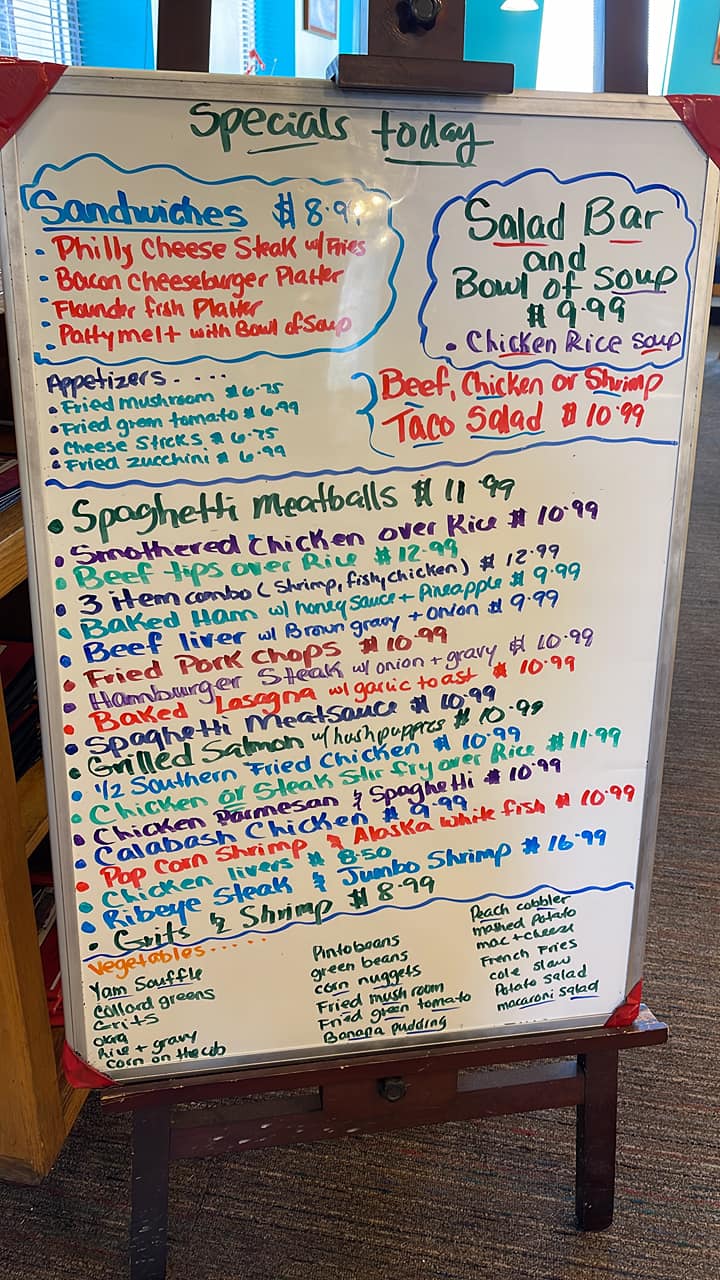 Specials today
Sandwiches $ 8.99
• Philly Cheese Steak w/ Fries
• Bacon Cheeseburger Platter
• Flounder fish Platter
• Patty melt with Bowl of Soup
Salad Bar
and
Bowl of Soup
$ 9.99
• Chicken Rice soup
Appetizers.....
• Fried mushroom $ 6.75
• Fried green tomato $ 6.99
• Cheese Sticks $ 6.75
• Fried zucchini $ 6.99
Beef, Chicken or Shrimp
Taco Salad $ 10.99
• Spaghetti meatballs $ 11.99
• Smothered Chicken over Rice $ 10.99
• Beef tips over Rice $ 12.99
• 3 item combo (Shrimp, fish, chicken) $ 12.99
• Baked Ham w/ honey Sauce + Pineapple $ 9.99
• Beef liver w/ Brown gravy + onion $ 9.99
• Fried Pork Chops $ 10.99
• Hamburger Steak w/ onion + gravy $ 10.99
• Baked Lasagna w/ garlic toast $ 10.99
• Spaghetti Meatsauce $ 10.99
• Grilled Salmon w/ hushpuppies $ 10.99
• 1/2 Southern Fried Chicken $ 10.99
• Chicken or Steak Stir fry over Rice $ 11.99
• Chicken Parmesan & Spaghetti $ 10.99
• Calabash Chicken $ 9.99
• Pop Corn Shrimp & Alaska white fish $ 10.99
• Chicken livers $ 8.50
• Ribeye Steak & Jumbo Shrimp $ 16.99
• Grits & Shrimp $ 8.99
Vegetables.....
Yam Souffle
Collard greens
Grits
okra
Rice + gravy
Corn on the cob
Pinto beans
green beans
corn nuggets
Fried mush room
Fried green tomato
Banana pudding
Peach cobbler
mashed Potato
mac + cheese
French Fries
cole slaw
Potato salad
macaroni salad